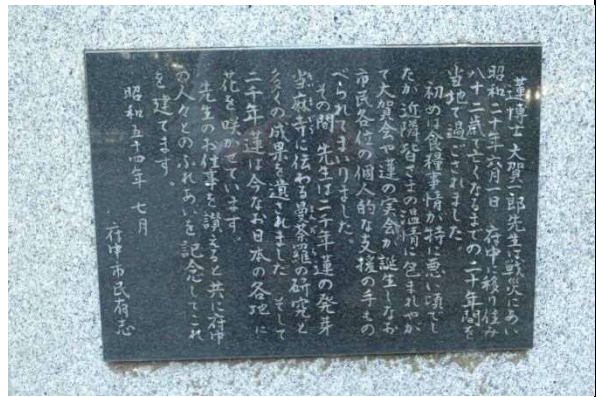 蓮博士 大賀一郎先生は戦災にあい
昭和二十年六月一日 府中に移り住み
八十二歳で亡くなるまでの二十年間を
当地で過ごされました。
初めは食糧事情が特に悪い頃でし
たが近隣皆さまの温情に包まれやが
て大賀会や蓮の実会が誕生しなお
市民各位の個人的な支援の手もの
べられてまいりました。
その間 先生は二千年蓮の発芽
當麻寺に伝わる曼荼羅の研究と
多くの成果を遺されました そして
二千年蓮は今なお日本の各地に
花を咲かせています。
先生のお仕事を讃えると共に府中
の人々とのふれあいを記念してこれ
を建てます。
昭和五十四年 七月
府中市民有志